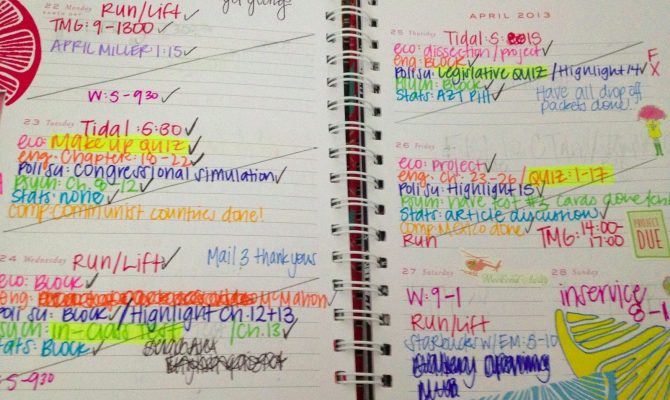 22 Monday
EARTH DAY
RUN/Lift ✓
TMG: 9-1300 ✓
APRIL MILLER 1:15 ✓
W: 5-930 ✓
23 Tuesday
Tidal: 5:30 ✓
eco: Make up quiz ✓
eng: Chapter: 19-22 ✓
Poli su: Congressional simulation ✓
Psych: Ch. 8-12 ✓
Stats: none ✓
Comp: Communist countries done!
24 Wednesday
RUN/Lift ✓
Mail 3 thank yous
eco: BLOCK ✓
eng: McMahon
Poli su: BLOCK ✓/Highlight Ch. 12+13
Psych: In-class test /Ch. 13 ✓
Stats: BLOCK ✓
5-930
APRIL 2013
25 Thursday
Tidal: 5 15 ✓
eco: dissection/project ✓
eng: BLOCK ✓
Poli su: Legislative QUIZ ✓/Highlight 14 ✓
Psych: BLOCK ✓
Stats: AZT Pill ✓
Have all drop off
packets done! ✓
F
X
26 Friday
eco: Project ✓
eng: Ch. 23-26 / QUIZ: 1-17
Poli su: Highlight 15 ✓
Psych: have test #3 cards done
Stats: article discussion ✓
Comp: Mexico done ✓
RUN
TMG: 14:00-
17:00
PROJECT
DUE
27 Saturday
W: 9-1
RUN/Lift
Starbucks W/EM: 8-10
28 Sunday
inservice
8-1